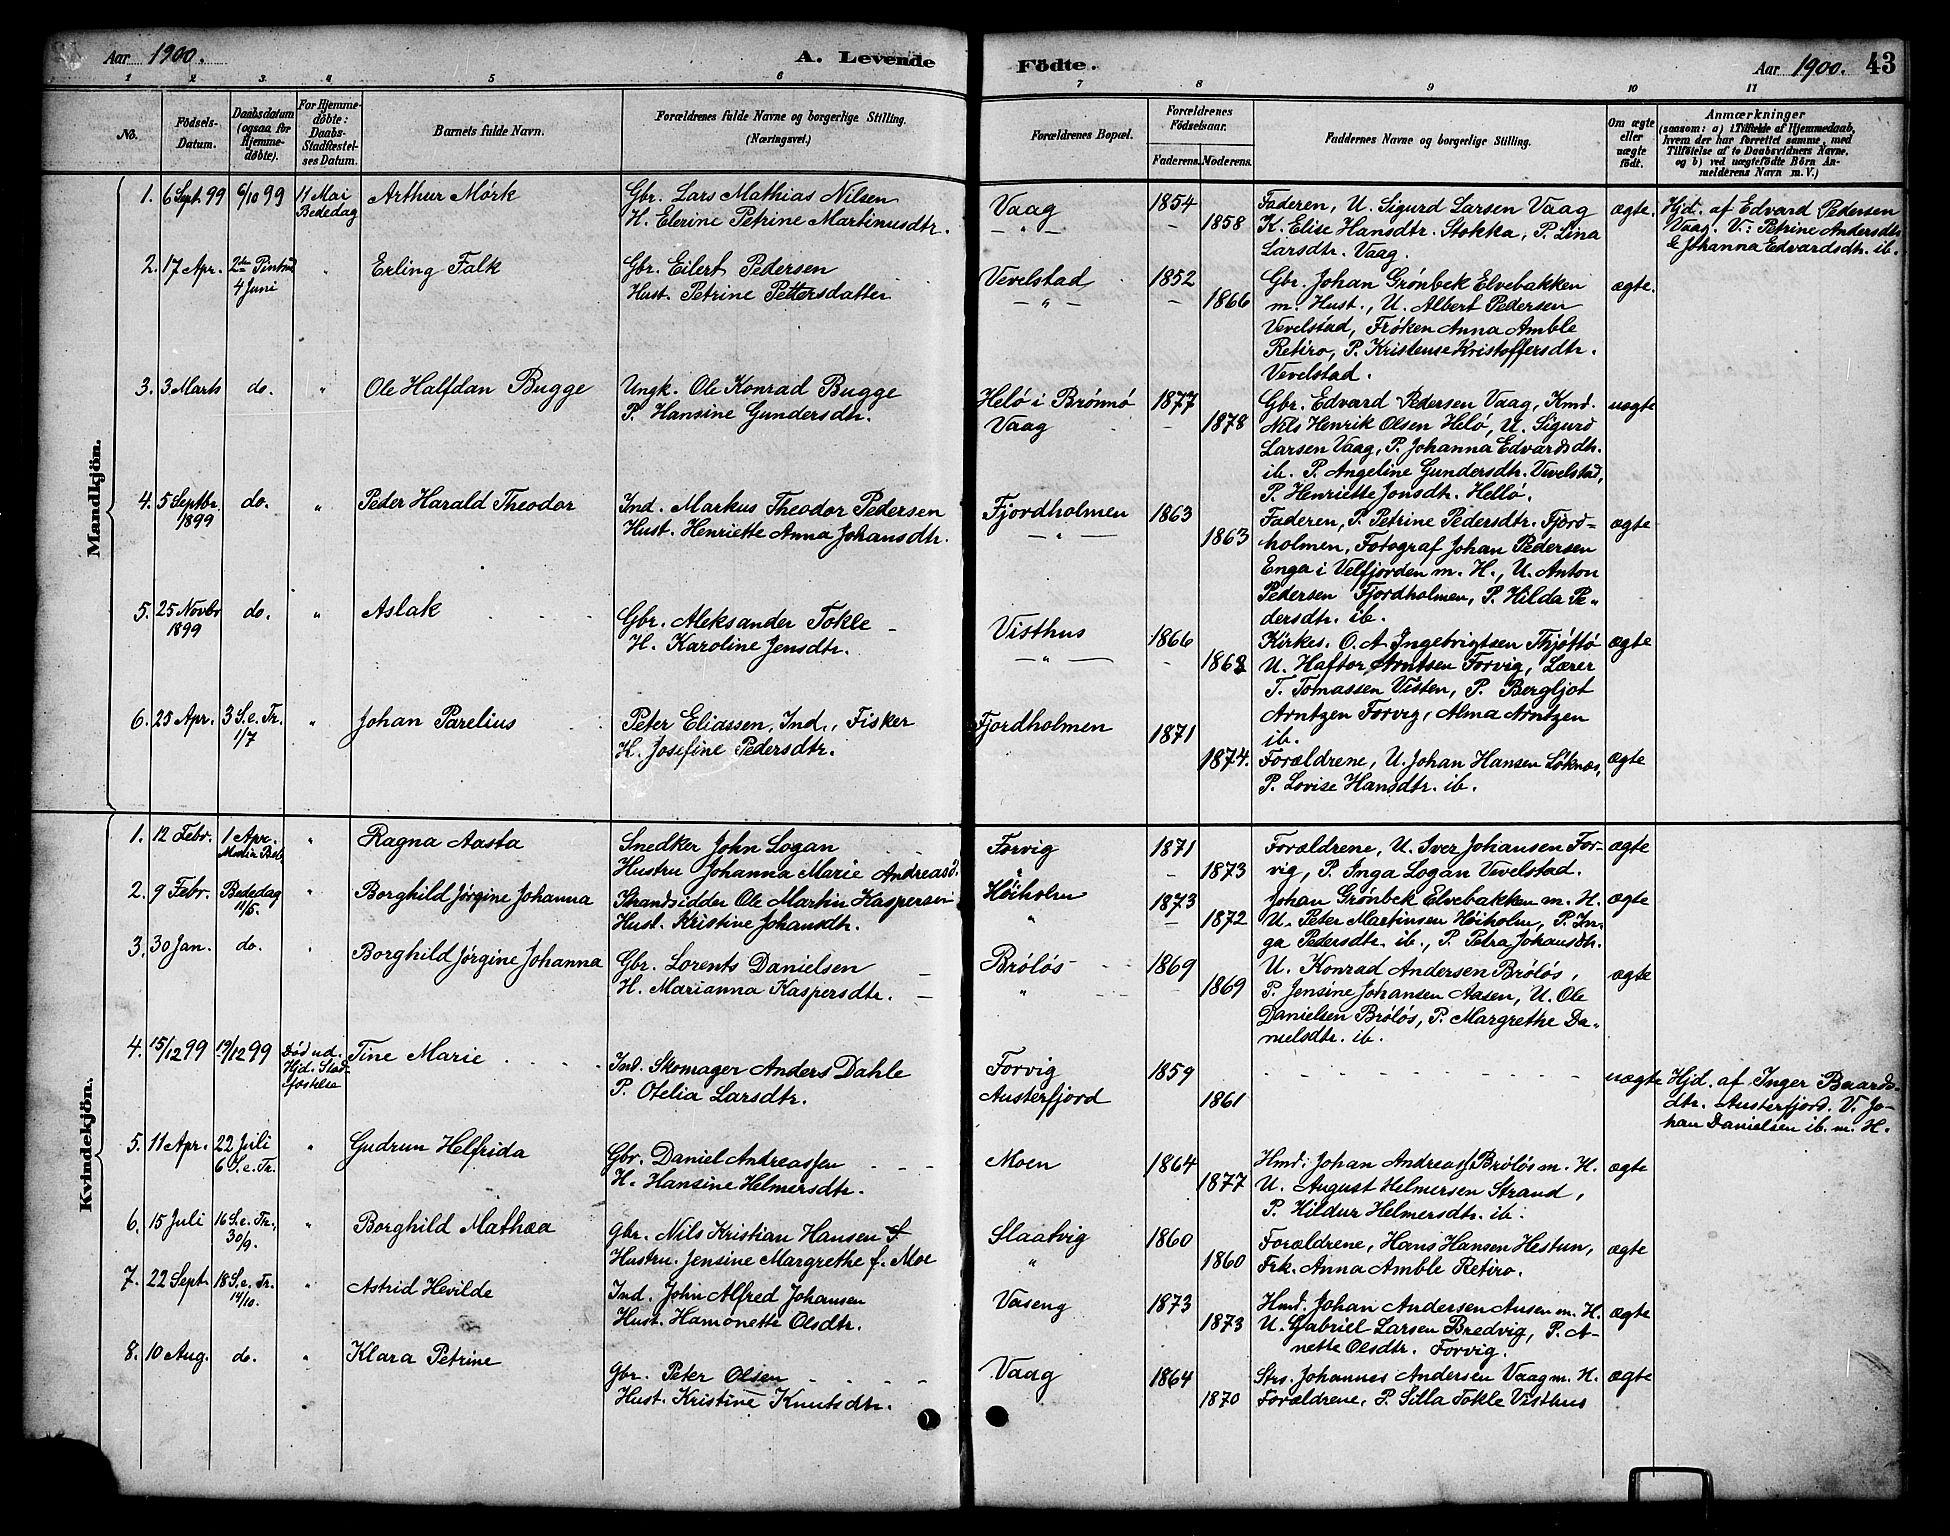 Aar 1900. A. Levende
1 2 3. 4 5 6
No. Födsels-Datum. Daabsdatum (ogsaa for Hjemme-døbte). For Hjemme-døbte: Daabs-Stadfæstel-ses Datum. Barnets fulde Navn. Forældrenes fulde Navne og borgerlige Stilling. (Næringsvei.)
Mandkjön.
1. 6 Sept. 99 6/10 99 11 Mai Bededag Arthur Mørk Gbr. Lars Mathias Nilsen
H. Elerine Petrine Martinusdtr.
2. 17 Apr. 2den Pintsd 4 Juni Erling Falk Gbr. Eilert Pedersen
Hust. Petrine Pettersdatter
3. 3 Marts do. " Ole Halfdan Bugge Ungk. Ole Konrad Bugge
P. Hansine Gundersdtr.
4. 5 Septbr. 1899 do. " Peder Harald Theodor Ind. Markus Theodor Pedersen
Hust. Henriette Anna Johansdtr.
5. 25 Novbr 1899 do. " Aslak Gbr. Aleksander Tokle
H. Karoline Jensdtr.
6. 25 Apr. 3 S.e.Tr. 1/7 " Johan Parelius Peter Eliassen, Ind., Fisker
H. Josefine Pedersdtr.
Kvindekjön.
1. 12 Febr. 1 Apr. Maria Beb. " Ragna Aasta Snedker John Logan
Hustru Johanna Marie Andreasd.
2. 9 Febr. Bededag 11/5. " Borghild Jørgine Johanna Strandsidder Ole Martin Kaspersen
Hust. Kristine Johansdtr.
3. 30 Jan. do. " Borghild Jørgine Johanna Gbr. Lorents Danielsen
H. Marianna Kaspersdtr.
4. 15/12 99 19/12 99 Död ud. Hjd. Stad-fæstelse Tine Marie Ind. Skomager Anders Dahle
P. Otelia Larsdtr.
5. 11 Apr. 22 Juli 6 S.e.Tr. " Gudrun Helfrida Gbr. Daniel Andreassen
H. Hansine Helmersdtr.
6. 15 Juli 16 S.e.Tr. 30/9. " Borghild Mathea Gbr. Nils Kristian Hansen
Hustru. Jensine Margrethe f. Moe
7. 22 Sept. 18 S.e.Tr. 14/10. " Astrid Hevilde Ind. John Alfred Johansen
Hust. Hamonette Olsdtr.
8. 10 Aug. do. " Klara Petrine Gbr. Peter Olsen
Hust. Kristine Knutsdtr.
Födte. Aar 1900. 43
7 8 9 10 11
Forældrenes Bopæl. Forældrenes Födselsaar. Faderens. Moderens. Faddernes Navne og borgerlige Stilling. Om ægte eller uægte födt. Anmærkninger
(saasom: a) i Tilfælde af Hjemmedaab,
hvem der har forrettet samme, med
Tilföielse af to Daabsvidners Navne.
og b) ved uægtefödte Börn An-
melderens Navn m. V.)
Vaag 1854 Faderen, U. Sigurd Larsen Vaag ægte. Hjd. af Edvard Pedersen
— " — 1858 K. Elise Hansdtr. Stokka, P. Lina Vaag. V: Petrine Andersdtr
Larsdtr. Vaag. & Johanna Edvardsdtr. ib.
Vevelstad 1852 Gbr. Johan Grønbek Elvebakken ægte.
— " — 1866 m. Hust., U. Albert Pedersen
Vevelstad, Frøken Anna Amble
Retiro, P. Kristense Kristoffersdtr.
Vevelstad.
Helø i Brønnø 1877 Gbr. Edvard Pedersen Vaag, Kmd. uægte
Vaag 1878 Nils Henrik Olsen Helø, U. Sigurd
Larsen Vaag, P. Johanna Edvardsdtr.
ib. P. Angeline Gundersdtr. Vevelstad,
P. Henriette Jonsdtr. Hellø.
Fjordholmen 1863 Faderen, P. Petrine Pedersdtr. Fjord- ægte
— " — 1863 holmen, Fotograf Johan Pedersen
Enga i Velfjorden m. H., U. Anton
Pedersen Fjordholmen, P. Hilda Pe-
dersdtr. ib.
Visthus 1866 Kirkes. O. A. Ingebrigtsen Thjøttø ægte
— " — 1868 U. Haftor Arntsen Forvig, Lærer
T. Tomassen Visten, P. Bergljot
Arntzen Forvig, Alma Arntzen
ib.
Fjordholmen 1871
1874. Forældrene, U. Johan Hansen Løknæs, ægte
P. Lovise Hansdtr. ib.
Forvig 1871 Forældrene, U. Iver Johansen For- ægte
" 1873 vig, P. Inga Logan Vevelstad.
Høiholm 1873 Johan Grønbek Elvebakken m. H. ægte
" 1872 U. Peter Martinsen Høiholm, P. In-
ga Pedersdtr. ib., P. Petra Johansdtr.
Brøløs 1869 U. Konrad Andersen Brøløs, ægte
" 1869 P. Jensine Johansen Aasen, U. Ole
Danielsen Brøløs, P. Margrethe Da-
nielsdtr. ib.
Forvig 1859 uægte Hjd. af Inger Baards-
Austerfjord 1861 dtr. Austerfjord. V. Jo-
han Danielsen ib. m. H.
Moen 1864 Hmd. Johan Andreass Brøløs m. H. ægte
1877 U. August Helmersen Strand,
P. Hildur Helmersdtr. ib.
Slaatvig 1860 Forældrene, Hans Hansen Hestun, ægte
" 1860 Frk. Anna Amble Retiro.
Vaseng 1873 Hmd. Johan Andersen Ausen m. H. ægte
1873 U. Gabriel Larsen Bredvig, P. A-
nette Olsdtr. Forvig.
Vaag 1864 Strs. Johannes Andersen Vaag m. H. ægte
1870 Forældrene, P. Silla Tokle Visthus